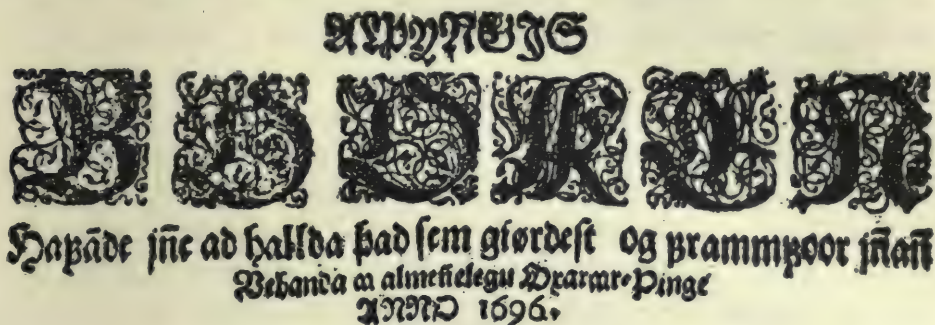 ALÞYNGIS
BOOKEN
Hafāde jn̄e ad hallda þad sem giørdest og frammfoor jn̄an̄
Vebanda aa almen̄elegu Øxarar-Þinge
ANNO 1696.